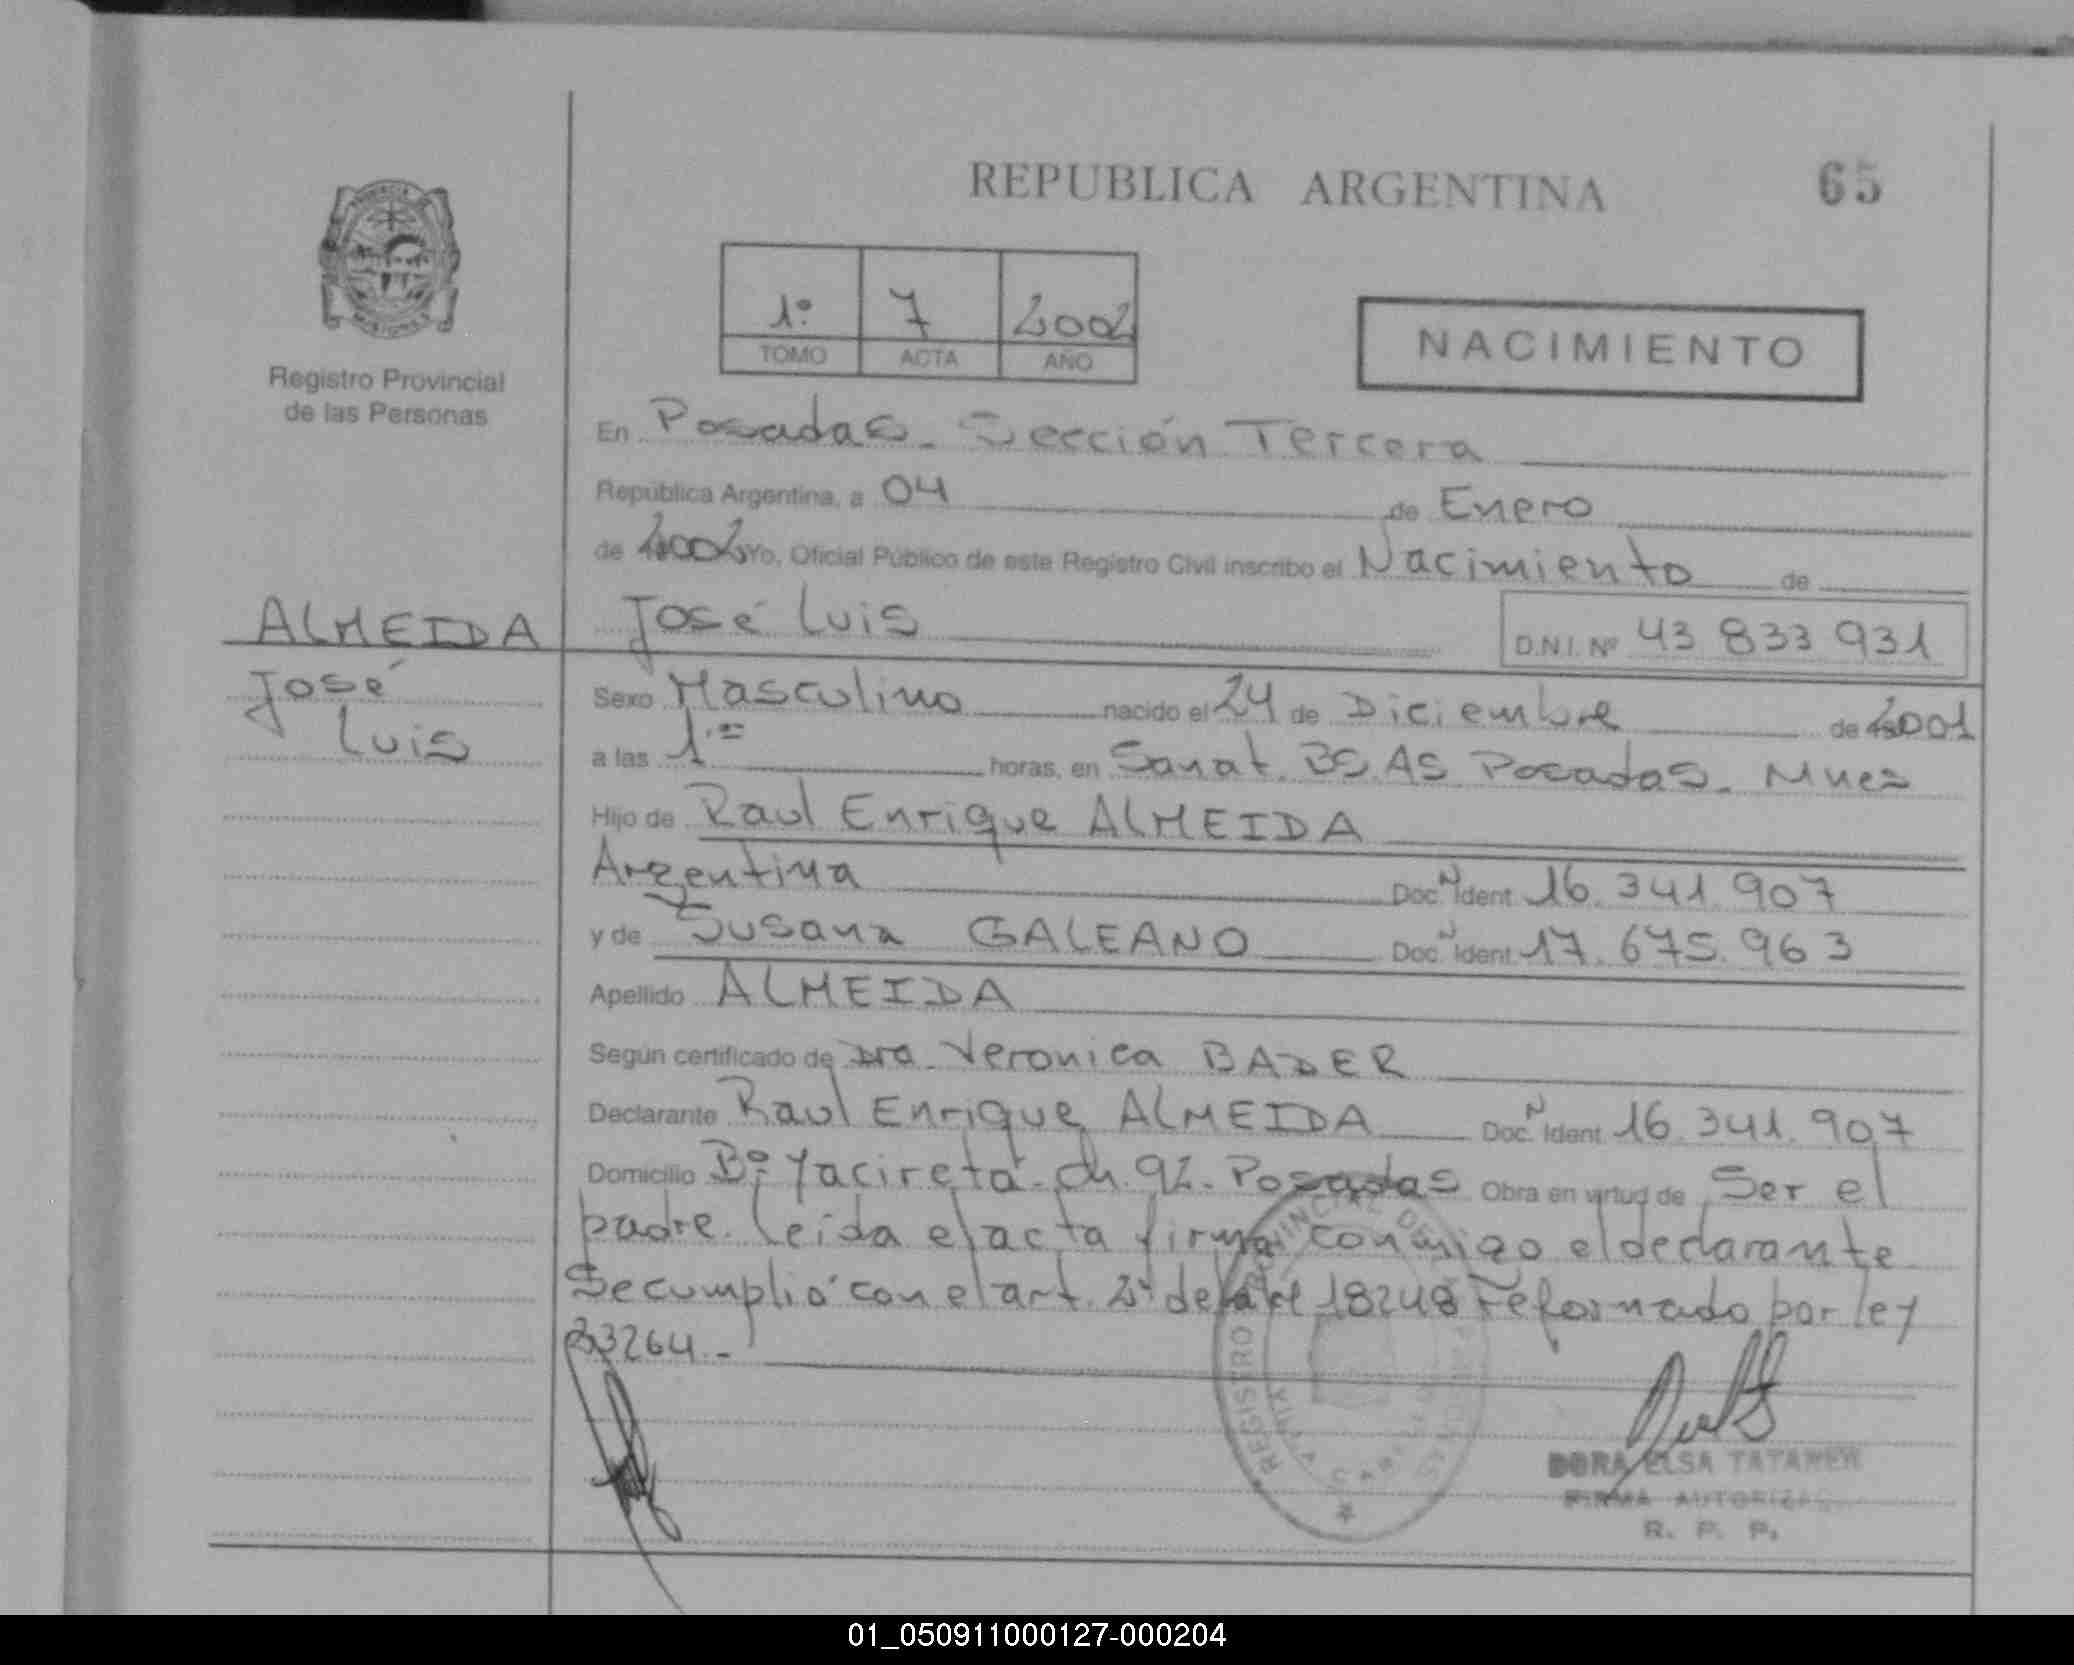 REPUBLICA ARGENTINA
65
Registro Provincial
de las Personas
1º 7 2002
TOMO ACTA AÑO
NACIMIENTO
En Posadas - Sección Tercera
República Argentina, a 04 de Enero
de 2002 Yo, Oficial Público de este Registro Civil inscribo el Nacimiento de
ALMEIDA
José
Luis
José Luis
D.N.I. Nº 43 833 931
Sexo Masculino nacido el 24 de Diciembre de 2001
a las 1.= horas, en Sanat. BS.AS Posadas - Mnes
Hijo de Raul Enrique ALMEIDA
Argentina Doc. N Ident. 16.341.907
y de Susana GALEANO Doc. N Ident. 17.675.963
Apellido ALMEIDA
Según certificado de Dra. Veronica BADER
Declarante Raul Enrique ALMEIDA Doc. N Ident. 16.341.907
Domicilio Bº Yacireta - Ch. 92 - Posadas Obra en virtud de Ser el
padre. Leida el acta firma conmigo el declarante
Se cumplió con el art. 2º de la 18248 reformado por ley
23264 -
REGISTRO PROVINCIAL DE
DORA ELSA
FIRMA AUTORIZADA
R. P. P.
01_050911000127-000204